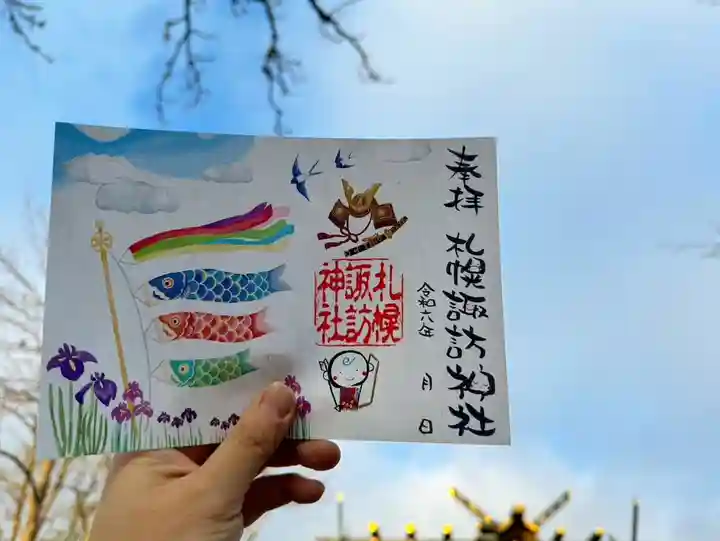 奉拝
札幌諏訪神社
令和六年
月
日
札幌
諏訪
神社